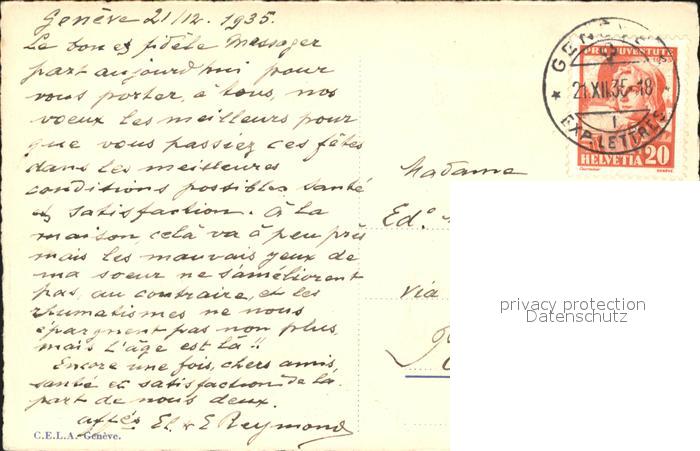 Genève 21/12. 1935.
Le bon et fidèle messager
part aujourd'hui pour
vous porter, à tous, nos
voeux les meilleurs pour
que vous passiez ces fêtes
dans les meilleures
conditions possibles santé
et satisfaction. À la
maison, celà va à peu près
mais les mauvais yeux de
ma soeur ne s'améliorent
pas, au contraire, et les
rhumatismes ne nous
épargnent pas non plus,
mais l'âge est là!!
Encore une fois, chers amis,
santé et satisfaction de la
part de nous deux.
affés El. & E Reymond
C.E.L.A. Genève.
PRO JUVENTUTE
1935
HELVETIA 20
21.XII.35-18
1
EXP. LETTRES
Madame
Ed.
via
privacy protection
Datenschutz